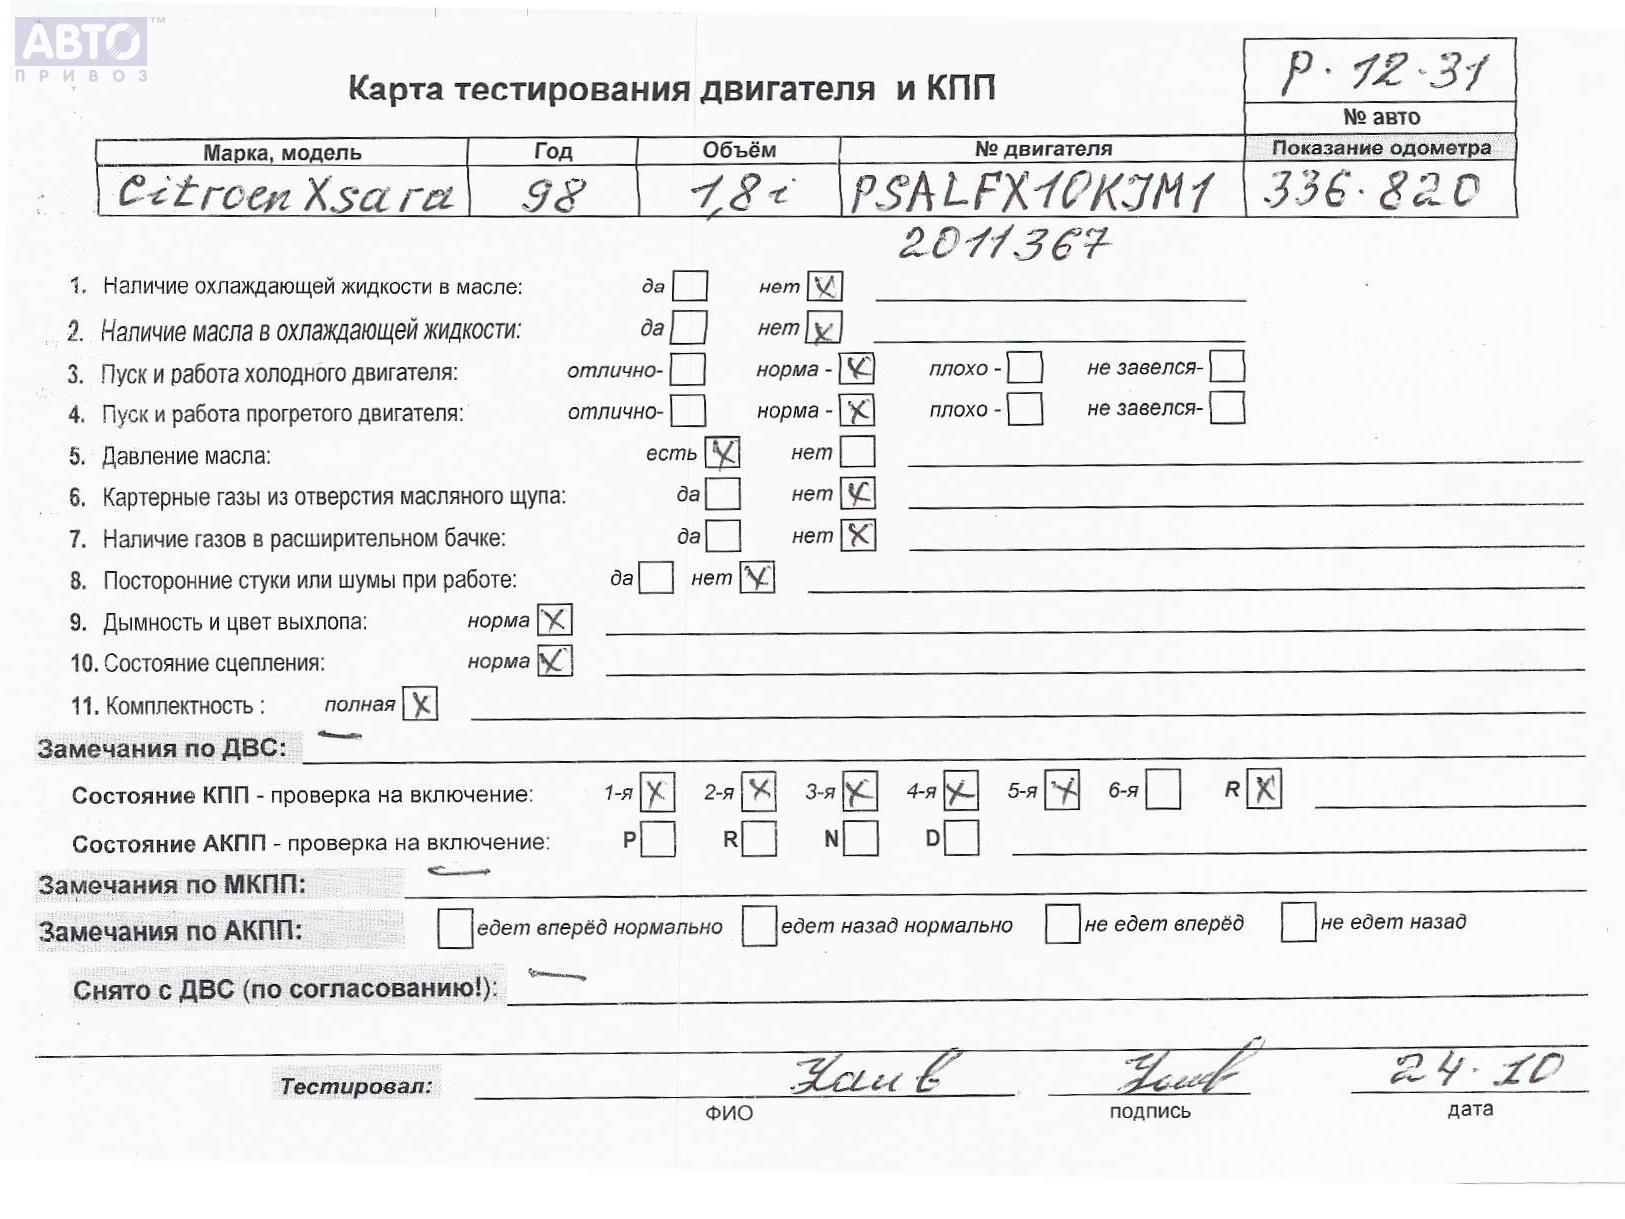 АВТО™
ПРИВОЗ
Р·12·31
Карта тестирования двигателя и КПП
№ авто
Марка, модель Год Объём № двигателя Показание одометра
Citroen Xsara 98 1,8i PSALFX10KJM1 336·820
2011367
1. Наличие охлаждающей жидкости в масле: да нет X
2. Наличие масла в охлаждающей жидкости: да нет X
3. Пуск и работа холодного двигателя: отлично- норма - X плохо - не завелся-
4. Пуск и работа прогретого двигателя: отлично- норма - X плохо - не завелся-
5. Давление масла: есть X нет
6. Картерные газы из отверстия масляного щупа: да нет X
7. Наличие газов в расширительном бачке: да нет X
8. Посторонние стуки или шумы при работе: да нет X
9. Дымность и цвет выхлопа: норма X
10. Состояние сцепления: норма X
11. Комплектность : полная X
Замечания по ДВС: —
Состояние КПП - проверка на включение: 1-я X 2-я X 3-я X 4-я X 5-я X 6-я R X
Состояние АКПП - проверка на включение: P R N D
Замечания по МКПП: —
Замечания по АКПП: едет вперёд нормально едет назад нормально не едет вперёд не едет назад
Снято с ДВС (по согласованию!): —
Тестировал: 24·10
ФИО подпись дата